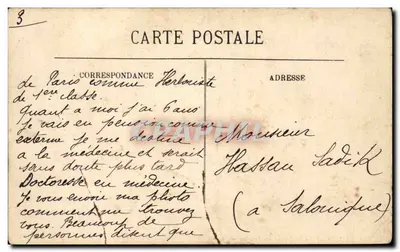 3
CARTE POSTALE
CORRESPONDANCE
ADRESSE
de Paris comme Herboriste
de 1ère classe.
Quant a moi j'ai 6 ans
je vais en pension comme
externe je me destine
a la médecine et serait
sans doute plus tard
Doctoresse en médecine.
Je vous envoie ma photo
comment me trouvez
vous. Beaucoup de
personnes disent que
Monsieur
Hassan Sadik
(a Salonique)